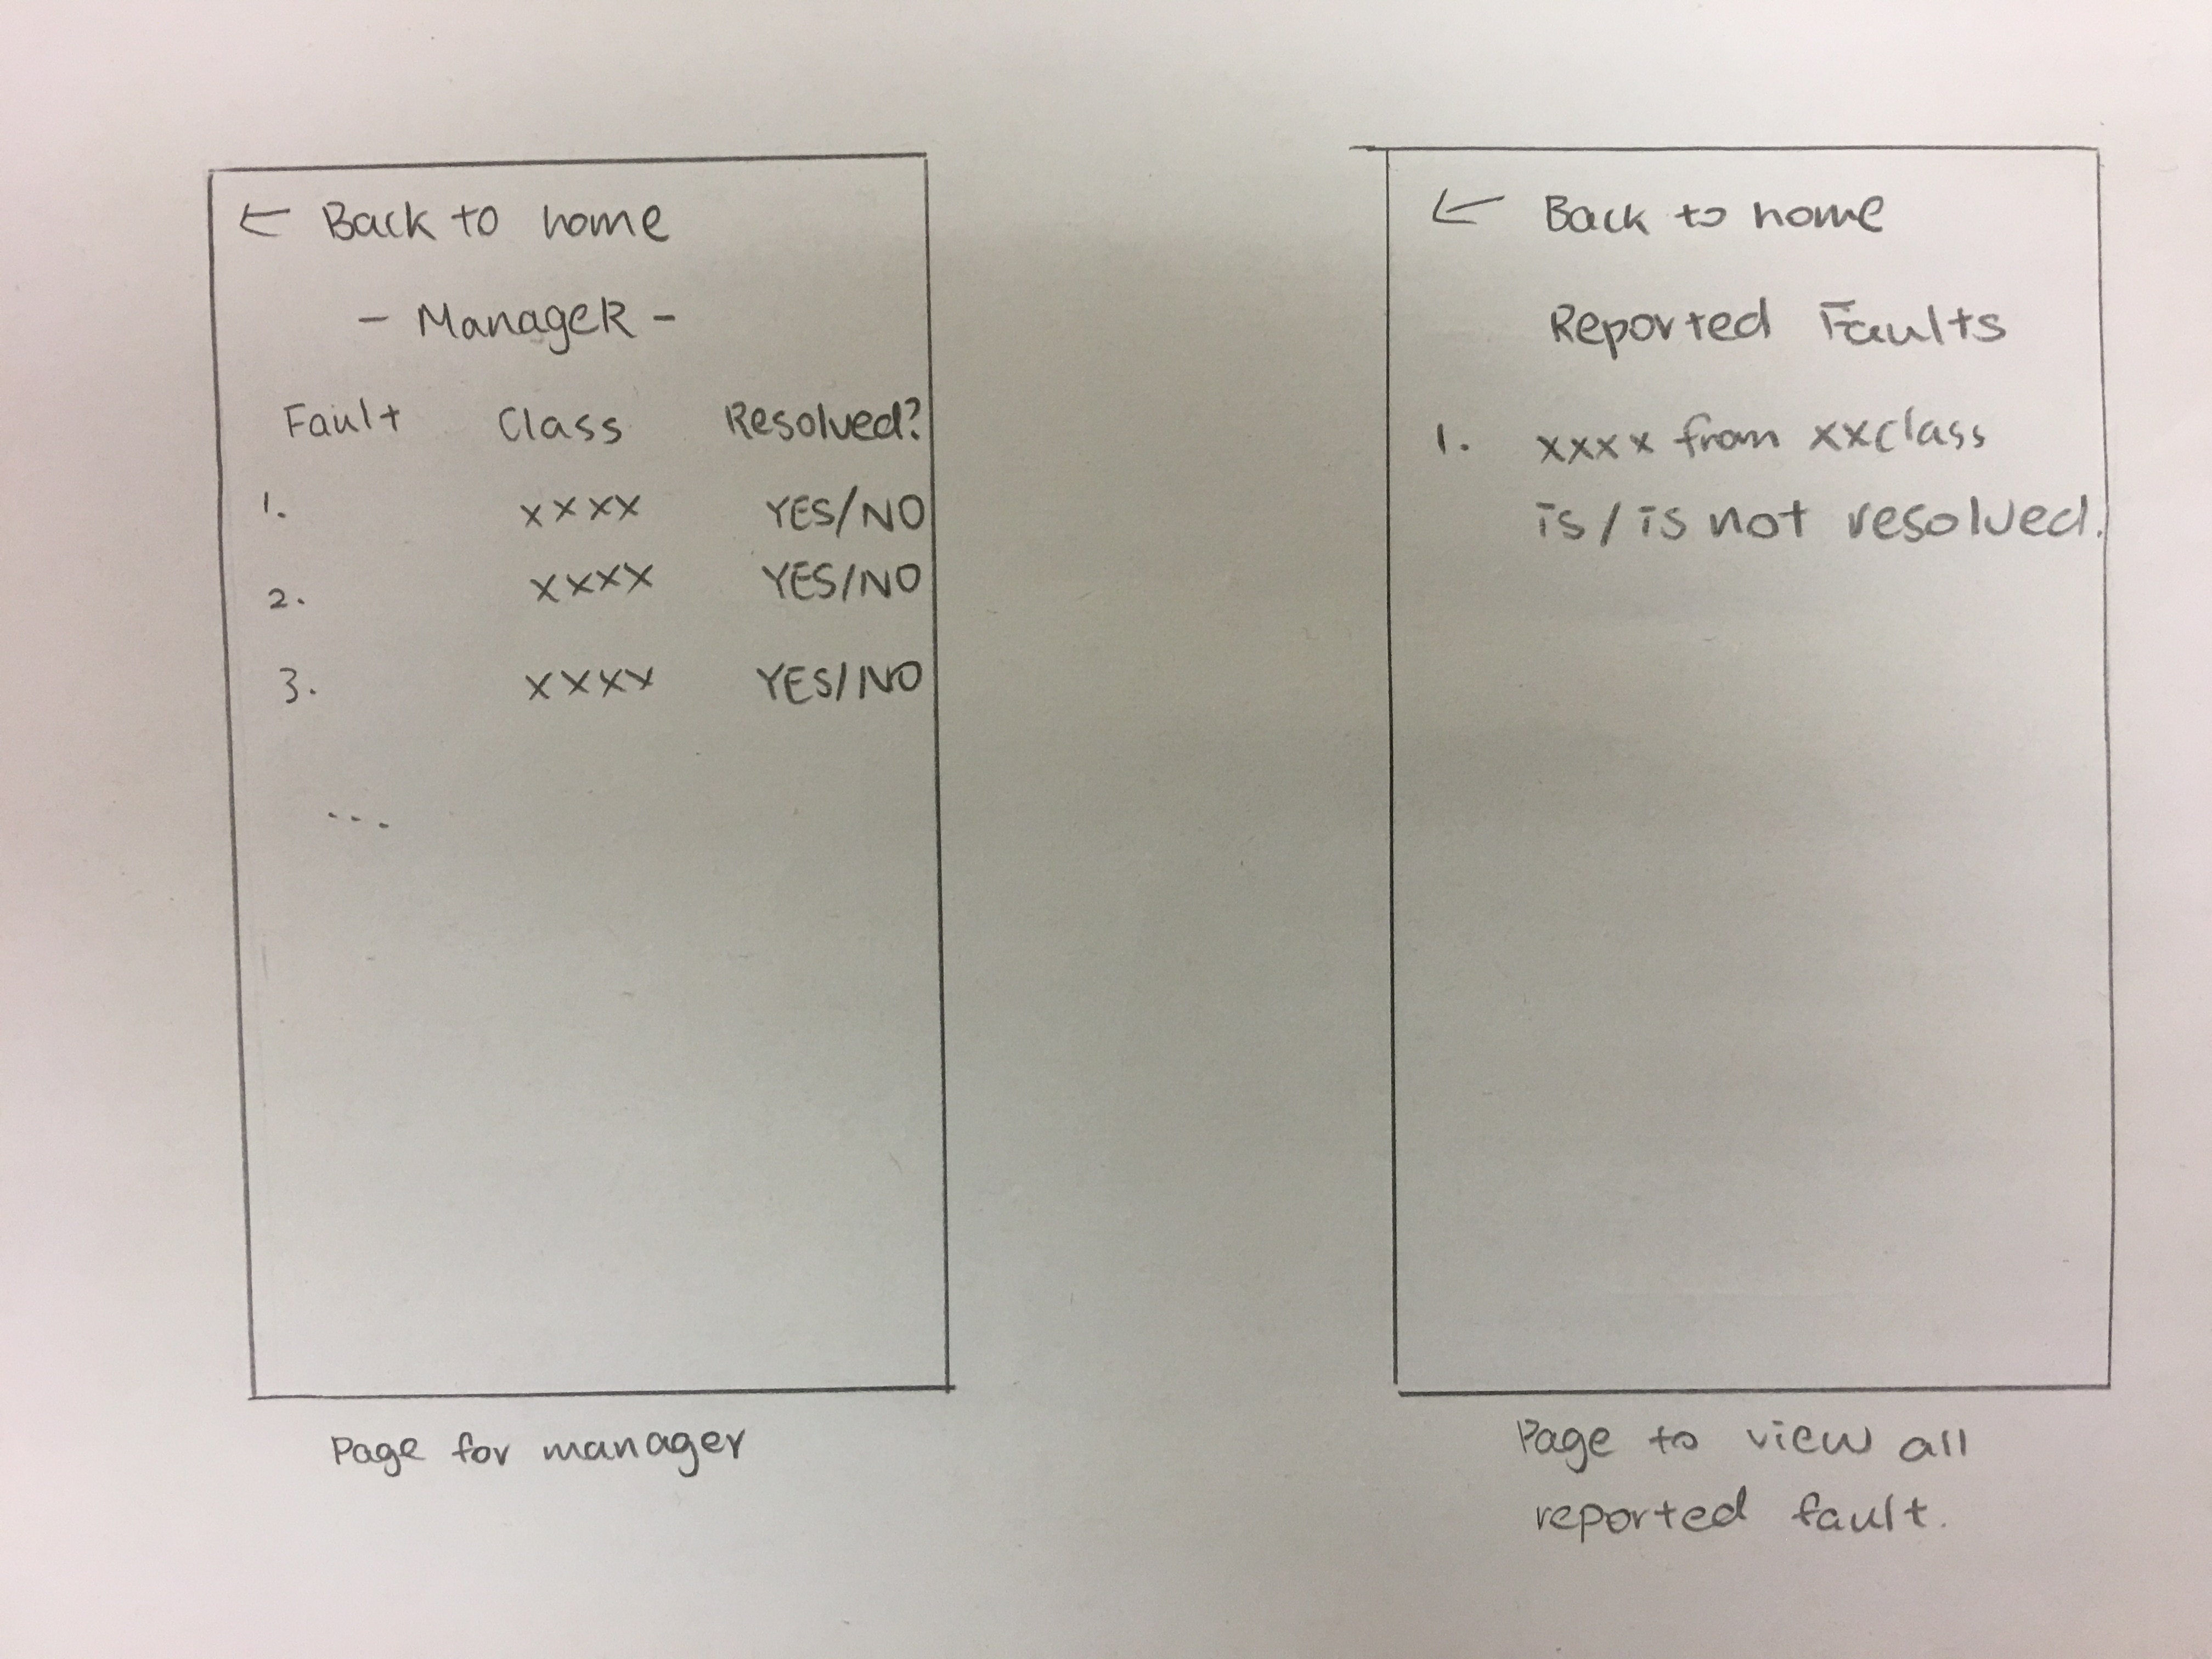 ← Back to home
- ManageR -
Fault Class Resolved?
1. xxxx YES/NO
2. xxxx YES/NO
3. xxxx YES/NO
...
Page for manager
← Back to home
Reported Faults
1. xxxx from xxclass
is/is not resolved.
Page to view all
reported fault.